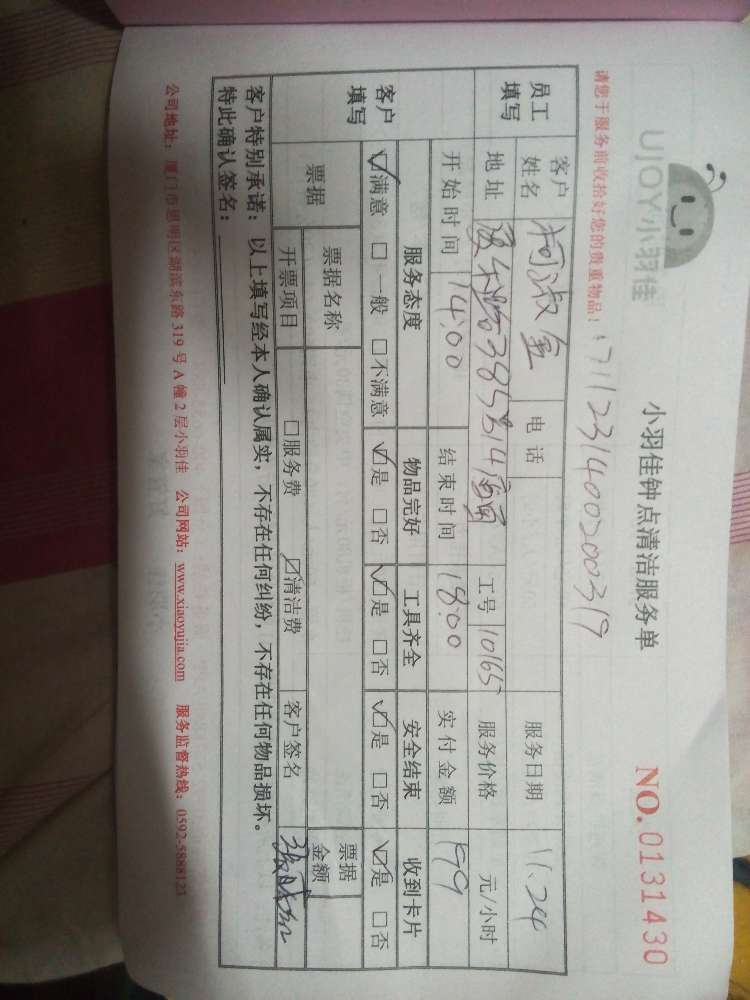 UJOY小羽佳
小羽佳钟点清洁服务单
NO.0131430
请您于服务前收拾好您的贵重物品！
1711231400200319
员工填写 客户姓名 柯淑金 电话 服务日期 11.24
地址 385 814 工号 10165 服务价格 元/小时
开始时间 14:00 结束时间 18:00 实付金额 199
客户填写 服务态度 物品完好 工具齐全 安全结束 收到卡片
☑满意 □一般 □不满意 ☑是 □否 ☑是 □否 ☑是 □否 ☑是 □否
票据 票据名称 票据金额
开票项目 □服务费 ☑清洁费 客户签名
客户特别承诺：以上填写经本人确认属实，不存在任何纠纷，不存在任何物品损坏。
特此确认签名：
公司地址：厦门市思明区湖滨东路319号A幢2层小羽佳 公司网站：www.xiaoyujia.com 服务监督热线：0592-5888121